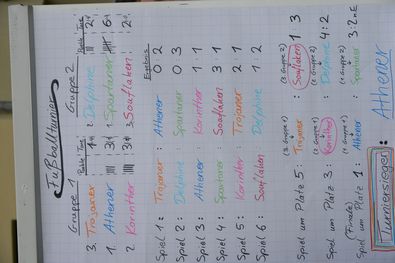 Fußballturnier
Gruppe 1 Punkte Tore Gruppe 2 Punkte Tore
3. Trojaner 2. Delphine
1. Athener 1. Spartaner
2. Korinther 3. Souflaken
Ergebnis
Spiel 1: Trojaner : Athener 0 : 2
Spiel 2: Delphine : Spartaner 0 : 3
Spiel 3: Athener : Korinther 1 : 1
Spiel 4: Spartaner : Souflaken 3 : 1
Spiel 5: Korinther : Trojaner 2 : 1
Spiel 6: Souflaken : Delphine 1 : 2
(3. Gruppe 1) (3. Gruppe 2)
Spiel um Platz 5: Trojaner : Souflaken 1 3
(2. Gruppe 1) (2. Gruppe 2)
Spiel um Platz 3: Korinther : Delphine 4:2
(Finale) (1. Gruppe 1) (1. Gruppe 2)
Spiel um Platz 1: Athener : Spartaner 3:2 n.E
Turniersieger: Athener